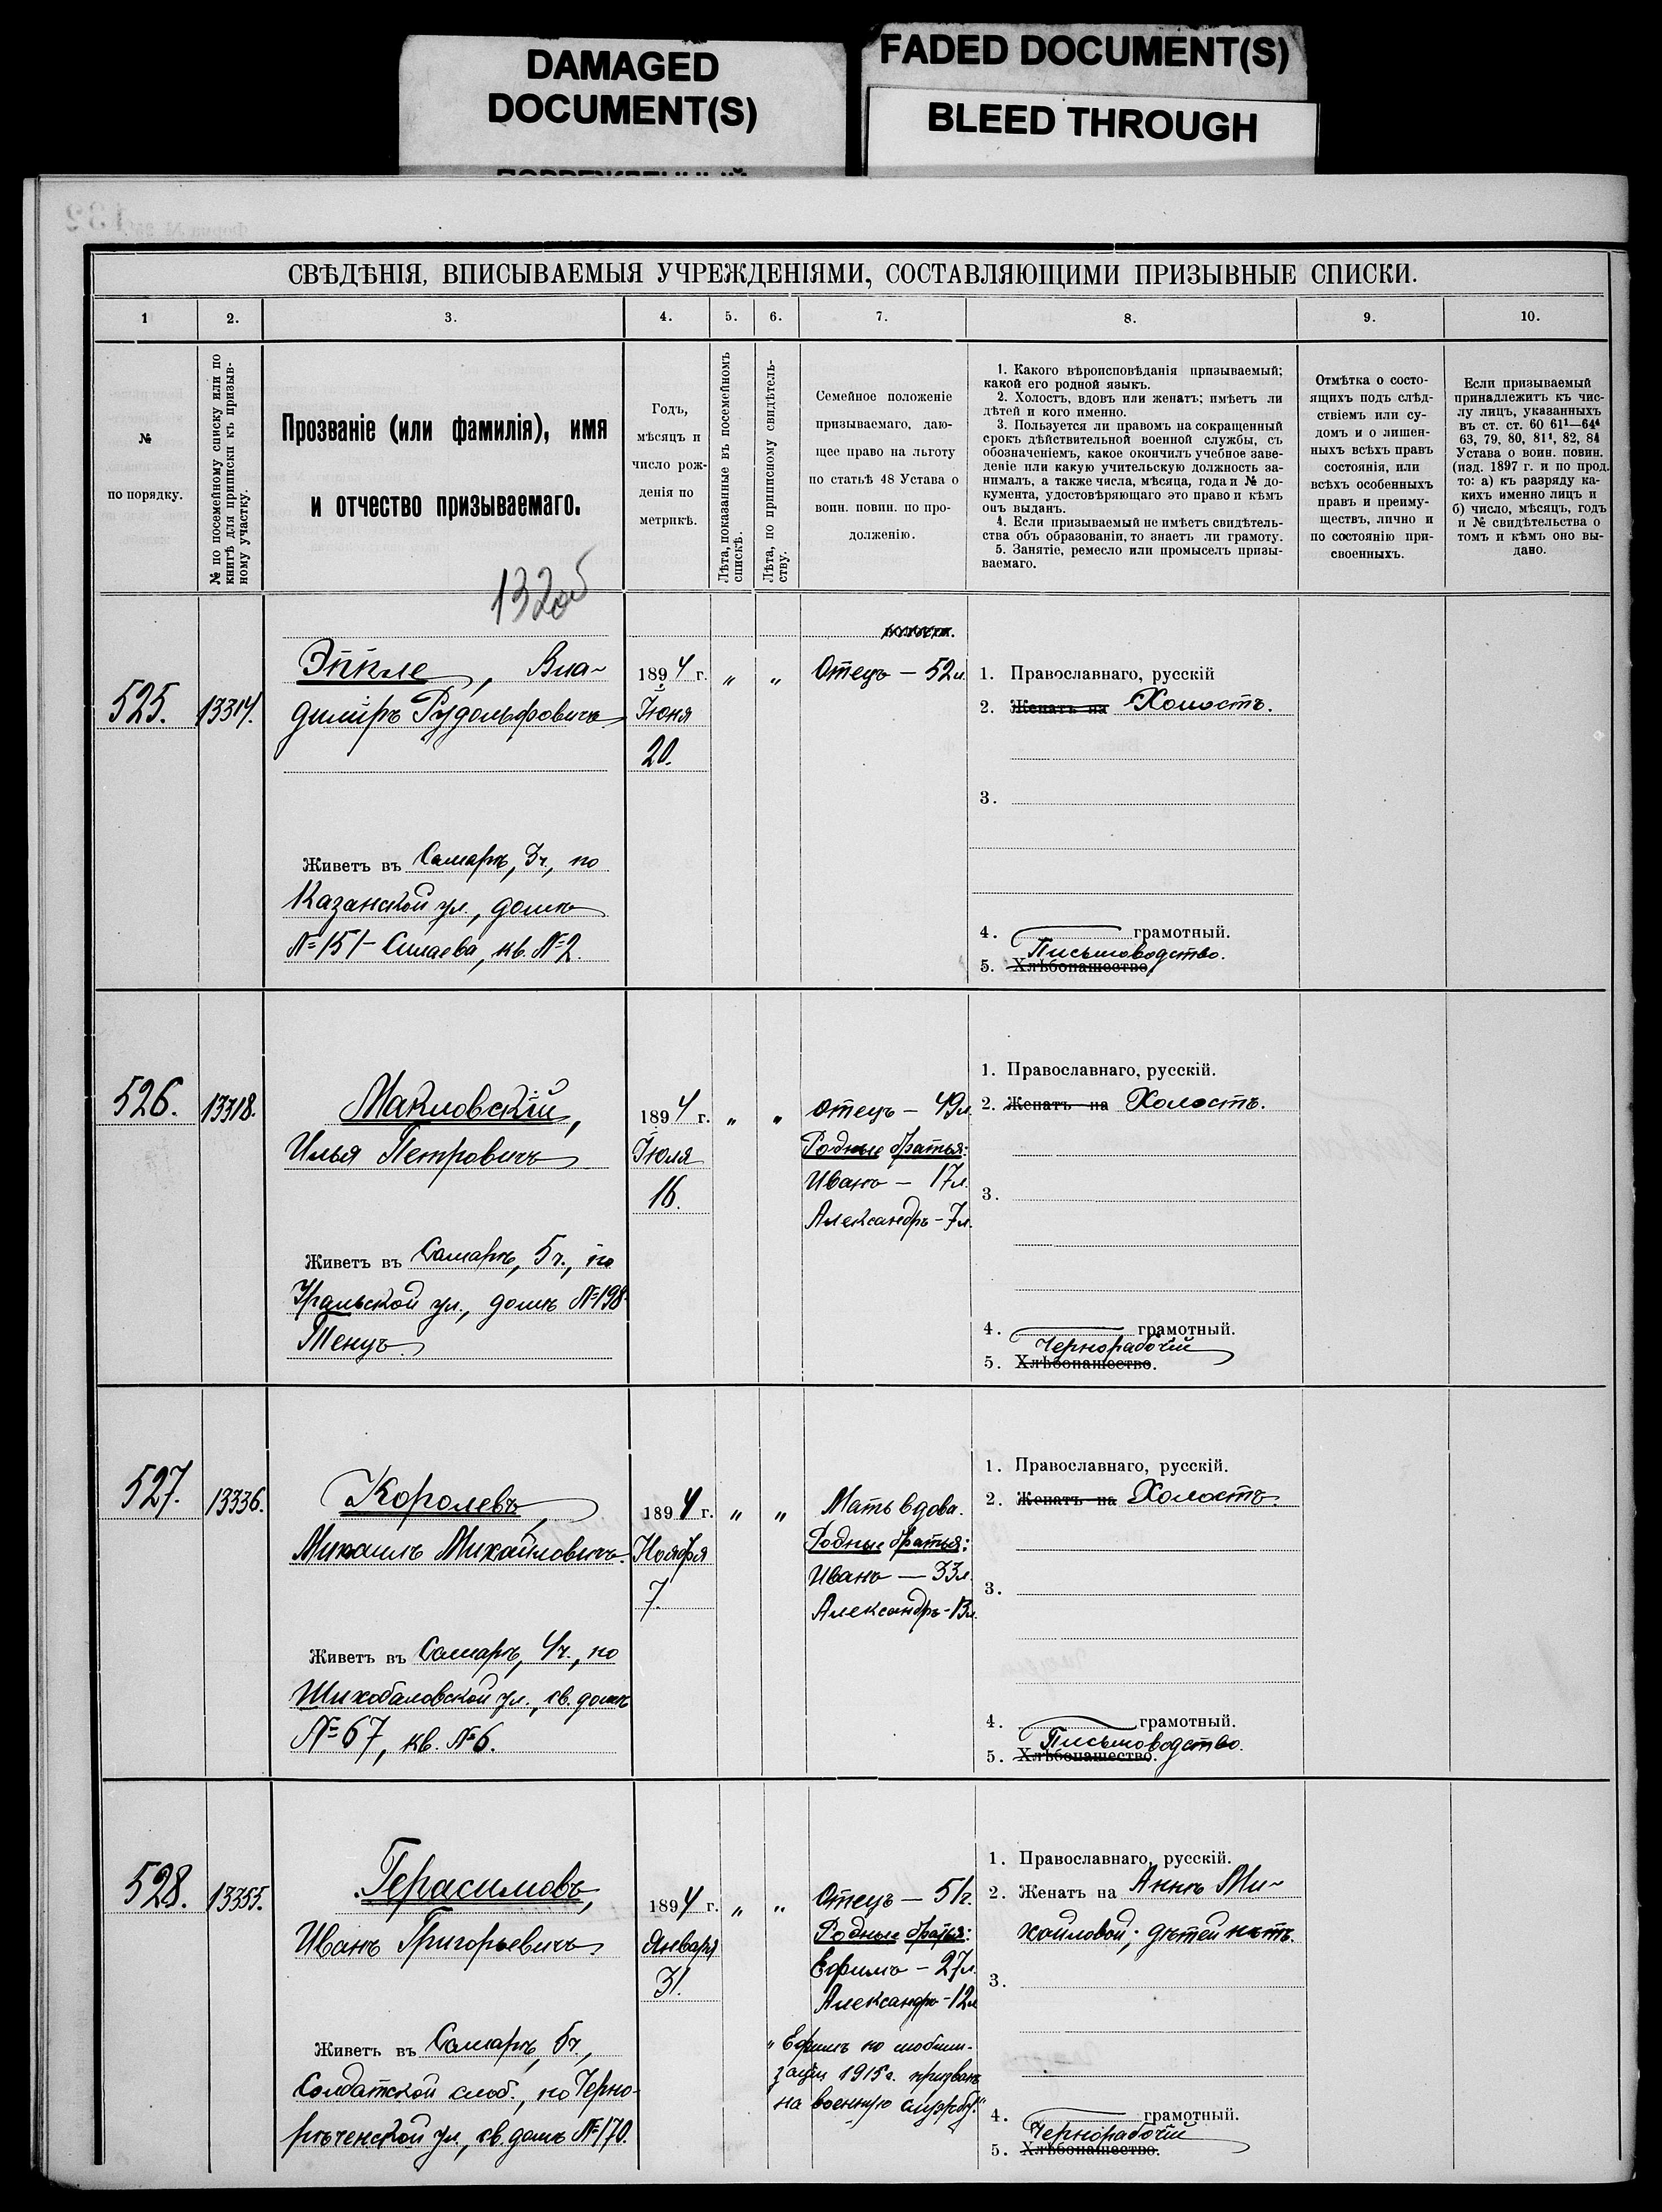 DAMAGED
DOCUMENT(S)
FADED DOCUMENT(S)
BLEED THROUGH
СВѢДѢНІЯ, ВПИСЫВАЕМЫЯ УЧРЕЖДЕНІЯМИ, СОСТАВЛЯЮЩИМИ ПРИЗЫВНЫЕ СПИСКИ.
1 2. 3. 4. 5. 6. 7. 8. 9. 10.
№
по порядку.
№ по посемейному списку или по
книгѣ для приписки къ призыв-
ному участку.
Прозваніе (или фамилія), имя
и отчество призываемаго.
Годъ,
мѣсяцъ и
число рож-
денія по
метрикѣ.
Лѣта, показанные въ посемейномъ
спискѣ.
Лѣта, по приписному свидѣтель-
ству.
Семейное положеніе
призываемаго, даю-
щее право на льготу
по статьѣ 48 Устава о
воин. повин. по про-
долженію.
1. Какого вѣроисповѣданія призываемый;
какой его родной языкъ.
2. Холостъ, вдовъ или женатъ; имѣетъ ли
дѣтей и кого именно.
3. Пользуется ли правомъ на сокращенный
срокъ дѣйствительной военной службы, съ
обозначеніемъ, какое окончилъ учебное заве-
деніе или какую учительскую должность за-
нималъ, а также числа, мѣсяца, года и № до-
кумента, удостовѣряющаго это право и кѣмъ
онъ выданъ.
4. Если призываемый не имѣетъ свидѣтель-
ства объ образованіи, то знаетъ ли грамоту.
5. Занятіе, ремесло или промыселъ призы-
ваемаго.
Отмѣтка о состо-
ящихъ подъ слѣд-
ствіемъ или су-
домъ и о лишен-
ныхъ всѣхъ правъ
состоянія, или
всѣхъ особенныхъ
правъ и преиму-
ществъ, лично и
по состоянію при-
своенныхъ.
Если призываемый
принадлежитъ къ чис-
лу лицъ, указанныхъ
въ ст. ст. 60 61¹—64⁴
63, 79, 80, 81¹, 82, 84
Устава о воин. повин.
(изд. 1897 г. и по прод.
то: а) къ разряду ка-
кихъ именно лицъ и
б) число, мѣсяцъ, годъ
и № свидѣтельства о
томъ и кѣмъ оно вы-
дано.
132об
525. 13314.
Эппле, Вла-
диміръ Рудольфовичъ
Живетъ въ Самарѣ, 3ч., по
Казанской ул., домъ
№151 Силаева, кв. №2.
1894 г.
Іюня
20.
" "
Отецъ — 52л.
1. Православнаго, русскій
2. Женатъ на Холостъ.
3.
4. грамотный.
Письмоводство.
5. Хлѣбопашество
526. 13318.
Макловскій,
Илья Петровичъ
Живетъ въ Самарѣ, 5ч., по
Уральской ул., домъ №198
Тенцъ.
1894 г.
Іюля
16.
" "
Отецъ — 49л.
Родные братья:
Иванъ — 17л.
Александръ - 7л.
1. Православнаго, русскій.
2. Женатъ на Холостъ.
3.
4. грамотный.
Чернорабочій
5. Хлѣбопашество.
527. 13336.
Королевъ,
Михаилъ Михайловичъ.
Живетъ въ Самарѣ, 4ч., по
Шихобаловской ул., св. домъ
№67, кв. №6.
1894 г.
Ноября
7.
" "
Мать вдова.
Родные братья:
Иванъ — 33л.
Александръ - 13л.
1. Православнаго, русскій.
2. Женатъ на Холостъ.
3.
4. грамотный.
Письмоводство.
5. Хлѣбопашество.
528. 13355.
Герасимовъ,
Иванъ Григорьевичъ
Живетъ въ Самарѣ, 5ч.,
Солдатской слоб., по Черно-
рѣченской ул., св. домъ №170.
1894 г.
Января
31.
" "
Отецъ — 51г.
Родные братья:
Ефимъ — 27л.
Александръ - 12л.
"Ефимъ по мобили-
заціи 1915г. призванъ
на военную службу."
1. Православнаго, русскій.
2. Женатъ на Аннѣ Ми-
хайловой; дѣтей нѣтъ.
3.
4. грамотный.
Чернорабочій
5. Хлѣбопашество.